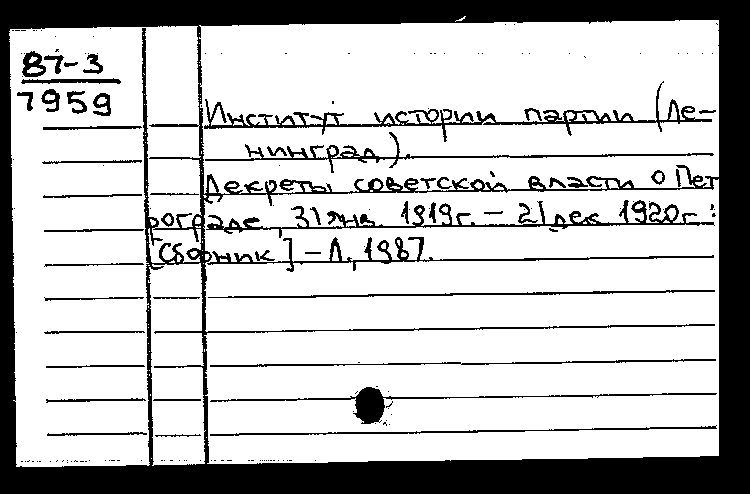 87-3
7959
Институт истории партии (Ле-
нинград).
Декреты советской власти о Пет
рограде, 31 янв. 1919г. – 21 дек 1920г.:
[Сборник] – Л., 1987.